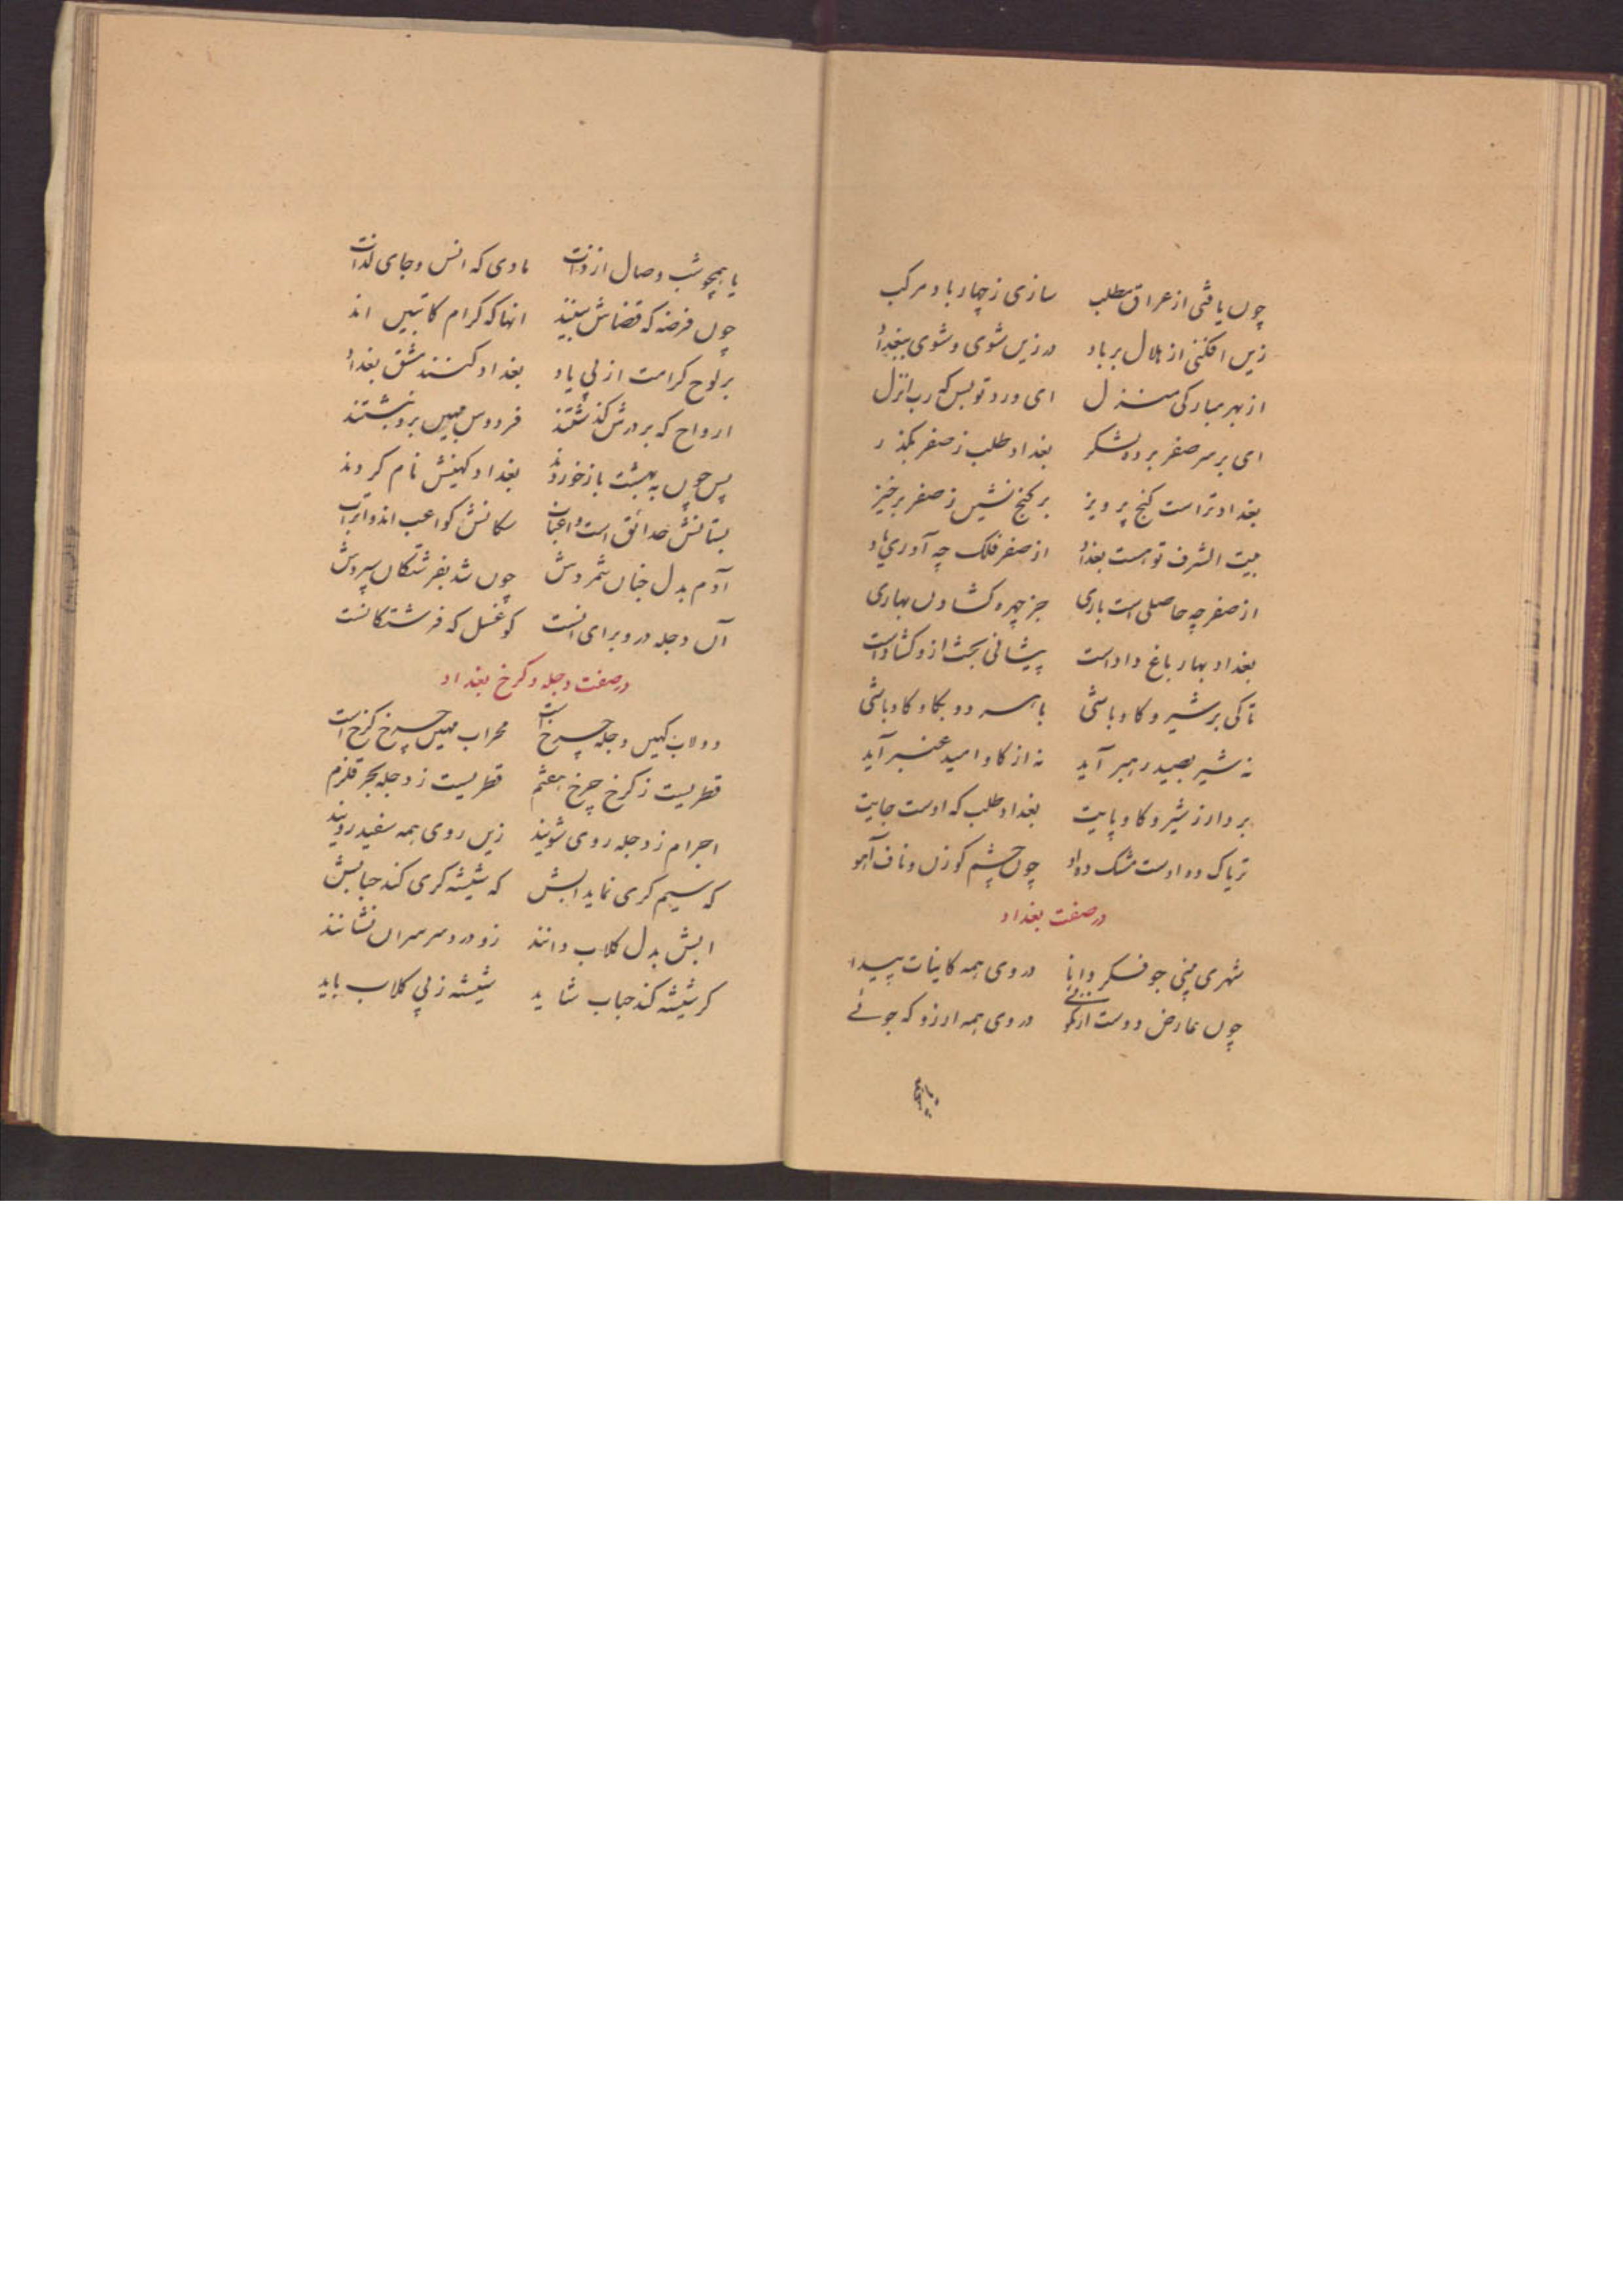 چوں یافتی از عراق مطلب سازی ز چهار باد مرکب
زین افکنی از هلال بر باد در زین شوی و شوی ببغداد
از بهر مبارکی منزل ای ورد تو بس که رب انزل
ای بر سر صفر برده لشکر بغداد طلب ز صفر بگذر
بغداد تراست کنج پرویز بر کنج نشین ز صفر برخیز
بیت الشرف تو هست بغداد از صفر فلک چه آوری یاد
از صفر چه حاصلی است باری جز چهره کشادن بهاری
بغداد بهار باغ داد است پیشانی بخت ازو کشاد است
تا کی بر شیر و کاو باشی با سر دو بکاو کاو باشی
نه شیر بصید رهبر آید نه از کاو امید عنبر آید
بردار ز شیر و کاو پایت بغداد طلب که اوست جایت
تریاک ده اوست مشک ده او چوں چشم کوزن و ناف آهو
در صفت بغداد
شهری بینی چو فکر دانا در وی همه کاینات پیدا
چوں عارض دوست از نکوئی در وی همه ارزو که جوئے
یا همچو شب وصال از ذات ماوی که انس و جای لذات
چوں فرضه که قضاش بینند انها که کرام کاتبین اند
بر لوح کرامت از پی یاد بغداد کنند مشق بغداد
ارواح که بر درش کذشتند فردوس مهین برو نبشتند
پس چوں به بهشت باز خوردند بغداد کهینش نام کردند
بستانش حدائق است و اعناب سکانش کواعب اند و اتراب
آدم بدل جنان شمردش چوں شد بفرشتکان سپردش
آں دجله درو برای انست کو غسل که فرشتکانست
در صفت دجله و کرخ بغداد
دولاب کهیں دجله چرخ است محراب مهیں چرخ کرخ است
قطریست ز کرخ چرخ هفتم قطریست ز دجله بحر قلزم
اجرام ز دجله روی شویند زیں روی همه سفید رویند
که سیم کری نماید ابش که شیشه کری کند حبابش
ابش بدل کلاب دانند زو درد سر سران نشانند
کر شیشه کند حباب شاید شیشه ز پی کلاب باید